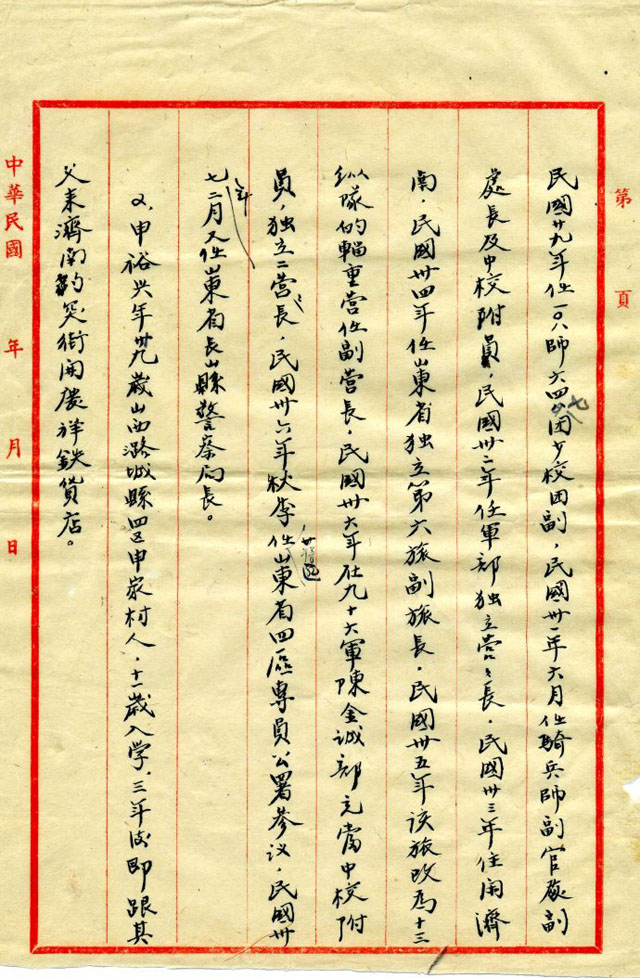 第 頁
民國廿九年任一〇八師六四七团少校团副，民國卅一年六月任騎兵師副官處副
處長及中校附員，民國卅二年任軍部独立营々長，民國卅三年住闲濟
南，民國卅四年任山東省独立第六旅副旅長，民國卅五年该旅改為十三
纵隊的輜重营任副营長，民國卅六年在九十六軍陳金诚部充當中校附
員，独立二营長，民國卅六年秋季任山東省四區專員公署参议，民國卅
七年二月又任山東省長山縣警察局長。
2、申裕兴年廿九歲山西潞城縣四区申家村人，十一歲入学，三年後即跟其
父来濟南趵突街開晟祥鉄貨店。
中華民國 年 月 日